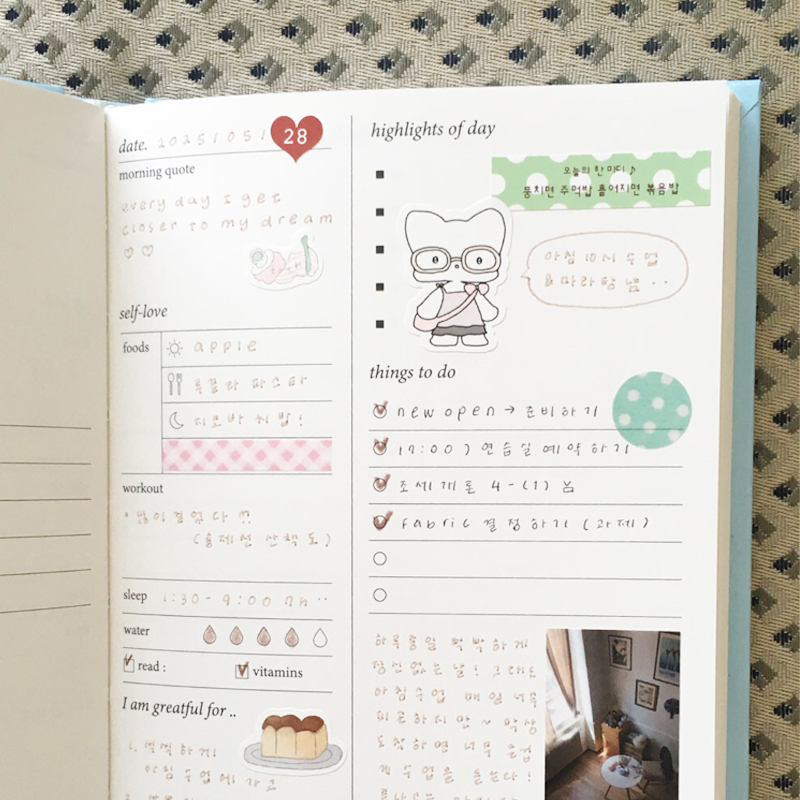 date. 2025 / 05 / 28
morning quote
every day I get
closer to my dream
♡♡
self-love
foods
apple
파스타
지로바 씨밥!
workout
많이 걸었다
산책도)
sleep 1:30 - 9:00 7h ··
water
read :
vitamins
I am greatful for ..
1. 성실하게!
아침 수업에 가고
highlights of day
오늘의 한 마디 ♪
뭉치면 주먹밥 흩어지면 볶음밥
아침 10시 수업
& 마라탕 냠 ··
things to do
new open → 준비하기
17:00) 연습실 예약하기
조세개론 4-(1) 남
fabric 결정하기 (과제)
하루종일 빡빡하게
정신없는 날! 그래도
아침수업 매일 너무
피곤하지만~ 막상
도착하면 너무 즐겁
게 수업을 듣는다!